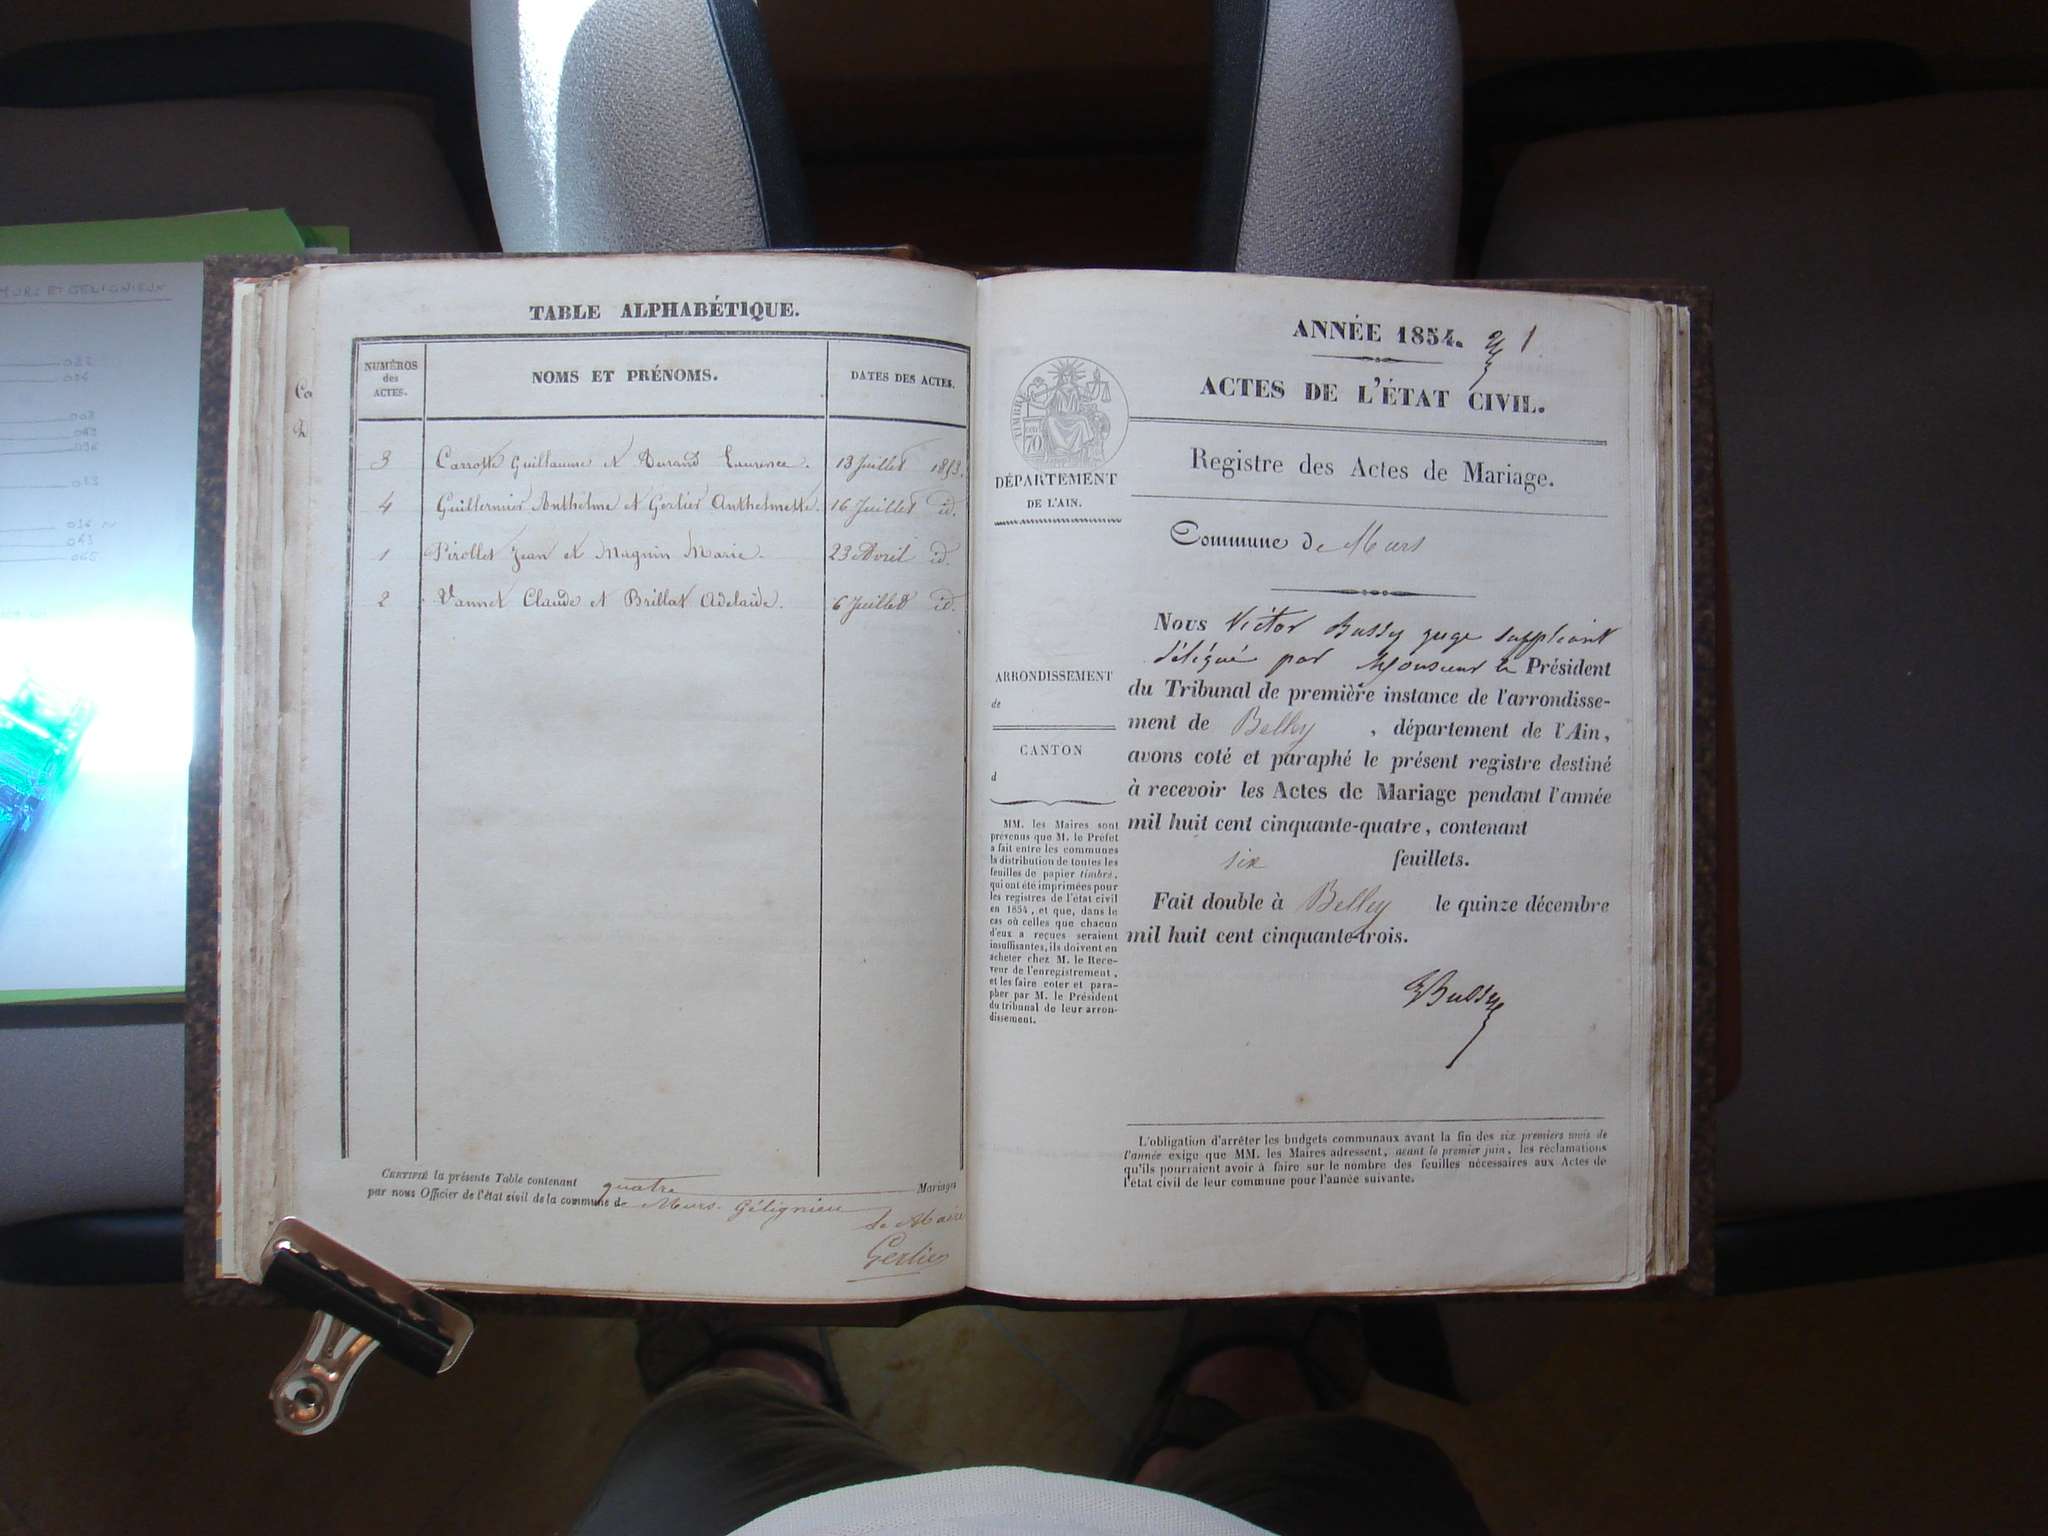 MURS ET GELIGNIEUX
TABLE ALPHABÉTIQUE.
NUMÉROS des ACTES.
NOMS ET PRÉNOMS.
DATES DES ACTES.
3 Carrotte Guillaume et Durand Laurence. 13 Juillet 1853.
4 Guillermier Anthelme et Gerlier Anthelmette. 16 Juillet id.
1 Pirollet Jean et Magnin Marie. 23 Avril id.
2 Vannet Claude et Brillat Adelaïde. 6 Juillet id.
CERTIFIÉ la présente Table contenant quatre Mariages
par nous Officier de l'état civil de la commune de Murs Gélignieu
Le Maire
Gerlier
ANNÉE 1854. 1
ACTES DE L'ÉTAT CIVIL.
TIMBRE
70
DÉPARTEMENT
DE L'AIN.
Registre des Actes de Mariage.
Commune de Murs
ARRONDISSEMENT
de
CANTON
d
MM. les Maires sont
prévenus que M. le Préfet
a fait entre les communes
la distribution de toutes les
feuilles de papier timbré,
qui ont été imprimées pour
les registres de l'état civil
en 1854, et que, dans le
cas où celles que chacun
d'eux a reçues seraient
insuffisantes, ils doivent en
acheter chez M. le Rece-
veur de l'enregistrement,
et les faire coter et para-
pher par M. le Président
du tribunal de leur arron-
dissement.
Nous Victor Bussy juge suppléant
délégué par Monsieur le Président
du Tribunal de première instance de l'arrondisse-
ment de Belley, département de l'Ain,
avons coté et paraphé le présent registre destiné
à recevoir les Actes de Mariage pendant l'année
mil huit cent cinquante-quatre, contenant
six feuillets.
Fait double à Belley le quinze décembre
mil huit cent cinquante-trois.
VBussy
L'obligation d'arrêter les budgets communaux avant la fin des six premiers mois de
l'année exige que MM. les Maires adressent, avant le premier juin, les réclamations
qu'ils pourraient avoir à faire sur le nombre des feuilles nécessaires aux Actes de
l'état civil de leur commune pour l'année suivante.